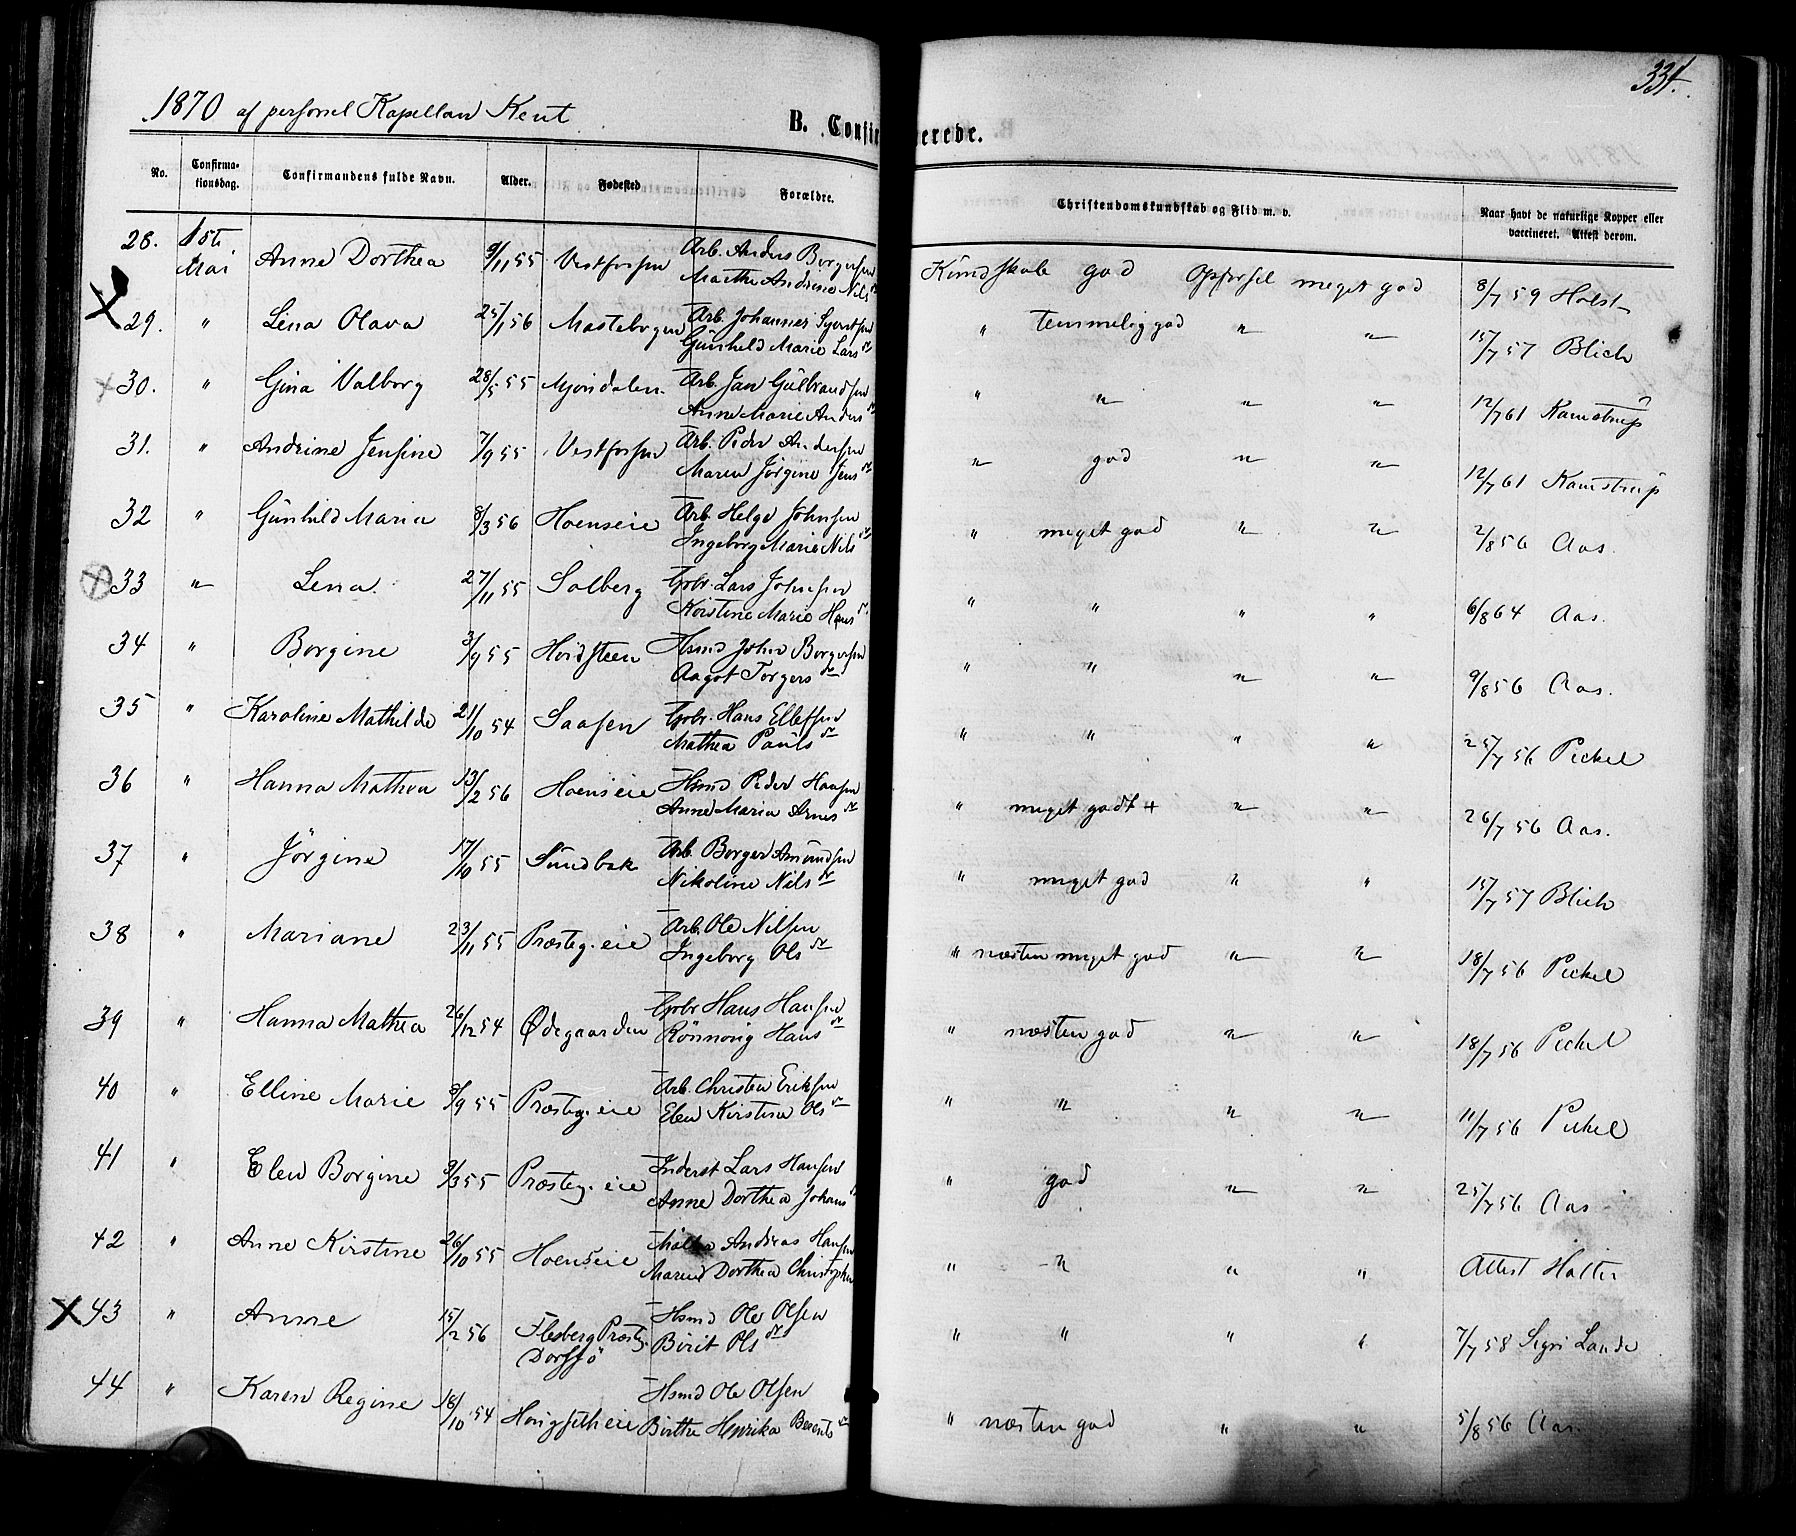 334.
1870 af personel Kapellan Kent
B. Confirmerede.
No. Confirma-tionsdag. Confirmandens fulde Navn. Alder. Fødested Forældre. Christendomskundskab og Flid m. v. Naar havt de naturlige Kopper eller vaccineret. Attest derom.
28. 1ste Mai Anne Dorthea 9/11 55 Vestfossen Arb. Anders Borgersen Kundskab god Opførsel meget god 8/7 59 Holst
Marthe Andrine Nils dr
29. " Lina Olava 25/1 56 Mastebogen Arb. Johannes Syvertsen " temmelig god " " 15/7 57 Blich
Gunhild Marie Lars dr
30. " Gina Valborg 28/5 55 Mjøndalen Arb. Jan Gulbrandsen " " " " 12/7 61 Kamstrup
Anne Marie Anders dr
31. " Andrine Jensine 7/9 55 Vestfossen Arb. Peder Andersen " god " " 12/7 61 Kamstrup
Maren Jørgine Jens dr
32 " Gunhild Maria 8/3 56 Hoenseie Arb. Helge Johnsen " meget god " " 2/8 56 Aas.
Ingeborg Marie Nils dr
33 " Lena. 27/11 55 Solberg Gbr. Lars Johnsen " " " " 6/8 64 Aas.
Kirstine Marie Hans dr.
34 " Borgine 3/9 55 Hoidsteen Hsmd John Borgersen " " " " 9/8 56 Aas.
Aagot Torgers dr
35 " Karoline Mathilde 21/10 54 Saasen Gbr. Hans Ellefsen " " " " 25/7 56 Pickel
Mathea Pauls dr
36 " Hanna Mathea 13/2 56 Hoenseie Hsmd Peder Hansen " meget godt + " " 26/7 56 Aas.
Anne Maria Arnes dr
37 " Jørgine 17/10 55 Sundbak Arb. Borger Amundsen " meget god " " 15/7 57 Blich
Nikoline Nils dr
38 " Mariane 23/11 55 Præsteg. eie Arb. Ole Nilsen " næsten meget god " " 18/7 56 Pickel
Ingeborg Ols dr
39 " Hanna Mathea 26/12 54 Ødegaarden Gbr Hans Hansen " næsten god " " 18/7 56 Pickel
Rønnoug Hans dr
40 " Elline Marie 8/9 55 Præsteg. eie Arb. Christen Eriksen " " " " 11/7 56 Pickel
Elen Kirstina Ols dr
41 " Elen Borgine 9/3 55 Præsteg. eie Inderst Lars Hansen " god " " 25/7 56 Aas
Anne Dorthea Johans dr
42 " Anne Kirstine 26/10 55 Hoenseie Andreas Hansen " " " " Attest Holter
Maren Dorthea Christophers
43 " Anne 15/2 56 Flesberg Præsteg. Hsmd Ole Olsen " " " " 7/7 58 Sigri Lande
Dorfsjø Birit Ols dr
44 " Karen Regine 18/10 54 Hougsetheie Hsmd Ole Olsen " næsten god " " 5/8 56 Aas.
Birthe Henrika Berents dr